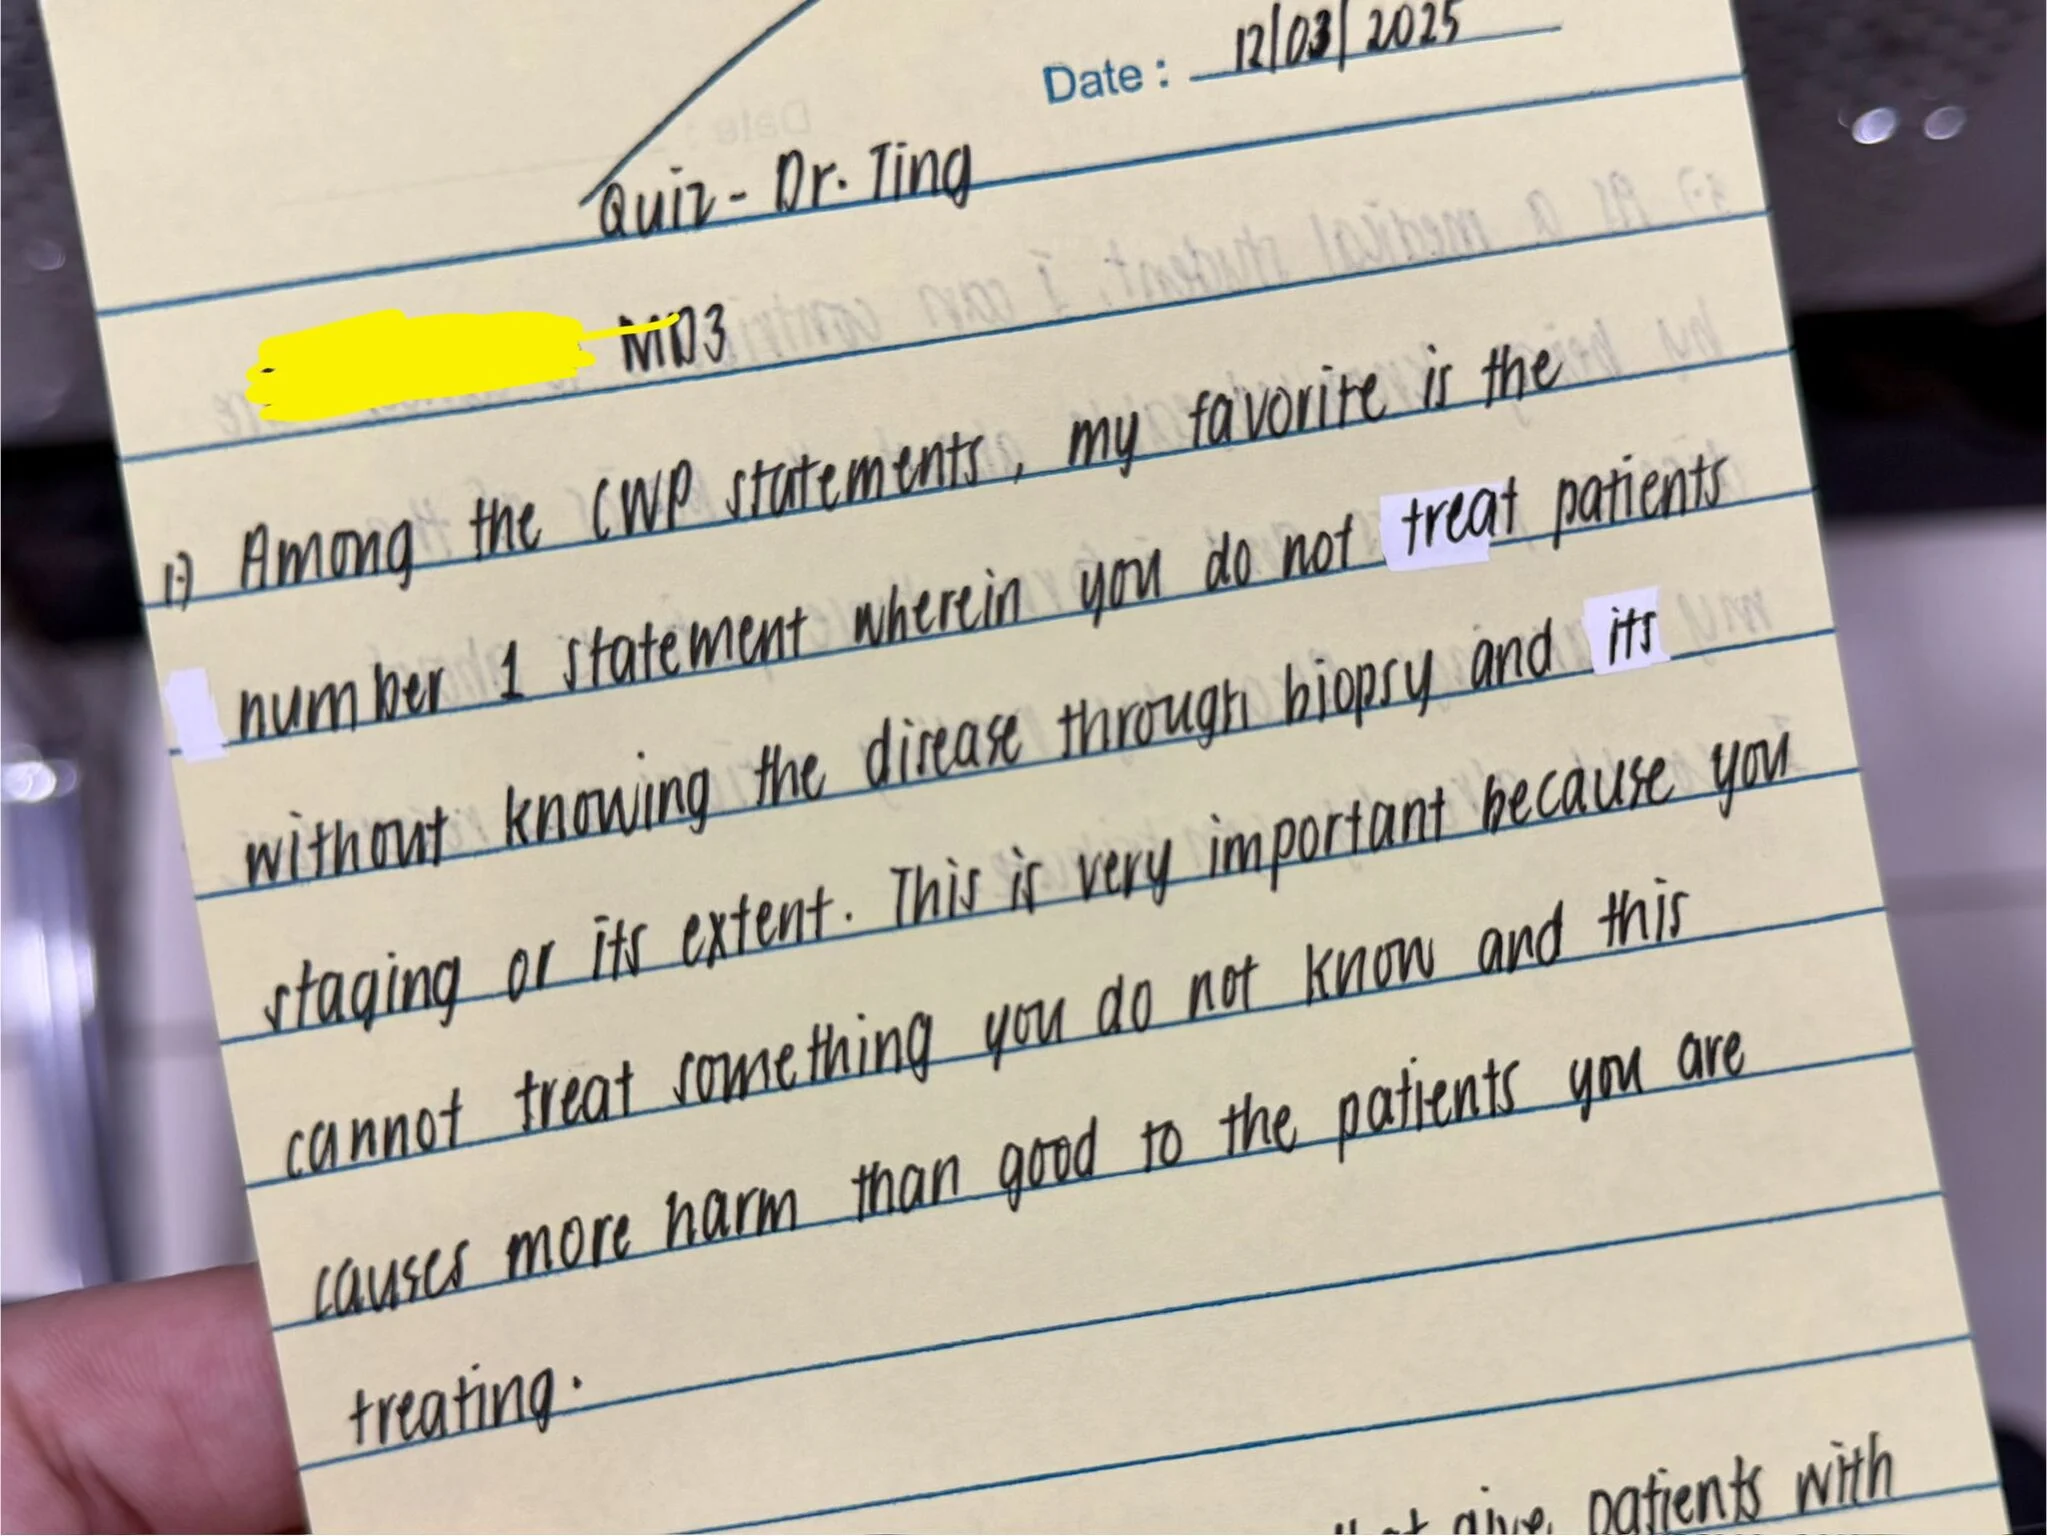 Date : 12/03/2025
Quiz - Dr. Ting
MD3
1.) Among the CWP statements, my favorite is the
number 1 statement wherein you do not treat patients
without knowing the disease through biopsy and its
staging or its extent. This is very important because you
cannot treat something you do not know and this
causes more harm than good to the patients you are
treating.
give patients with